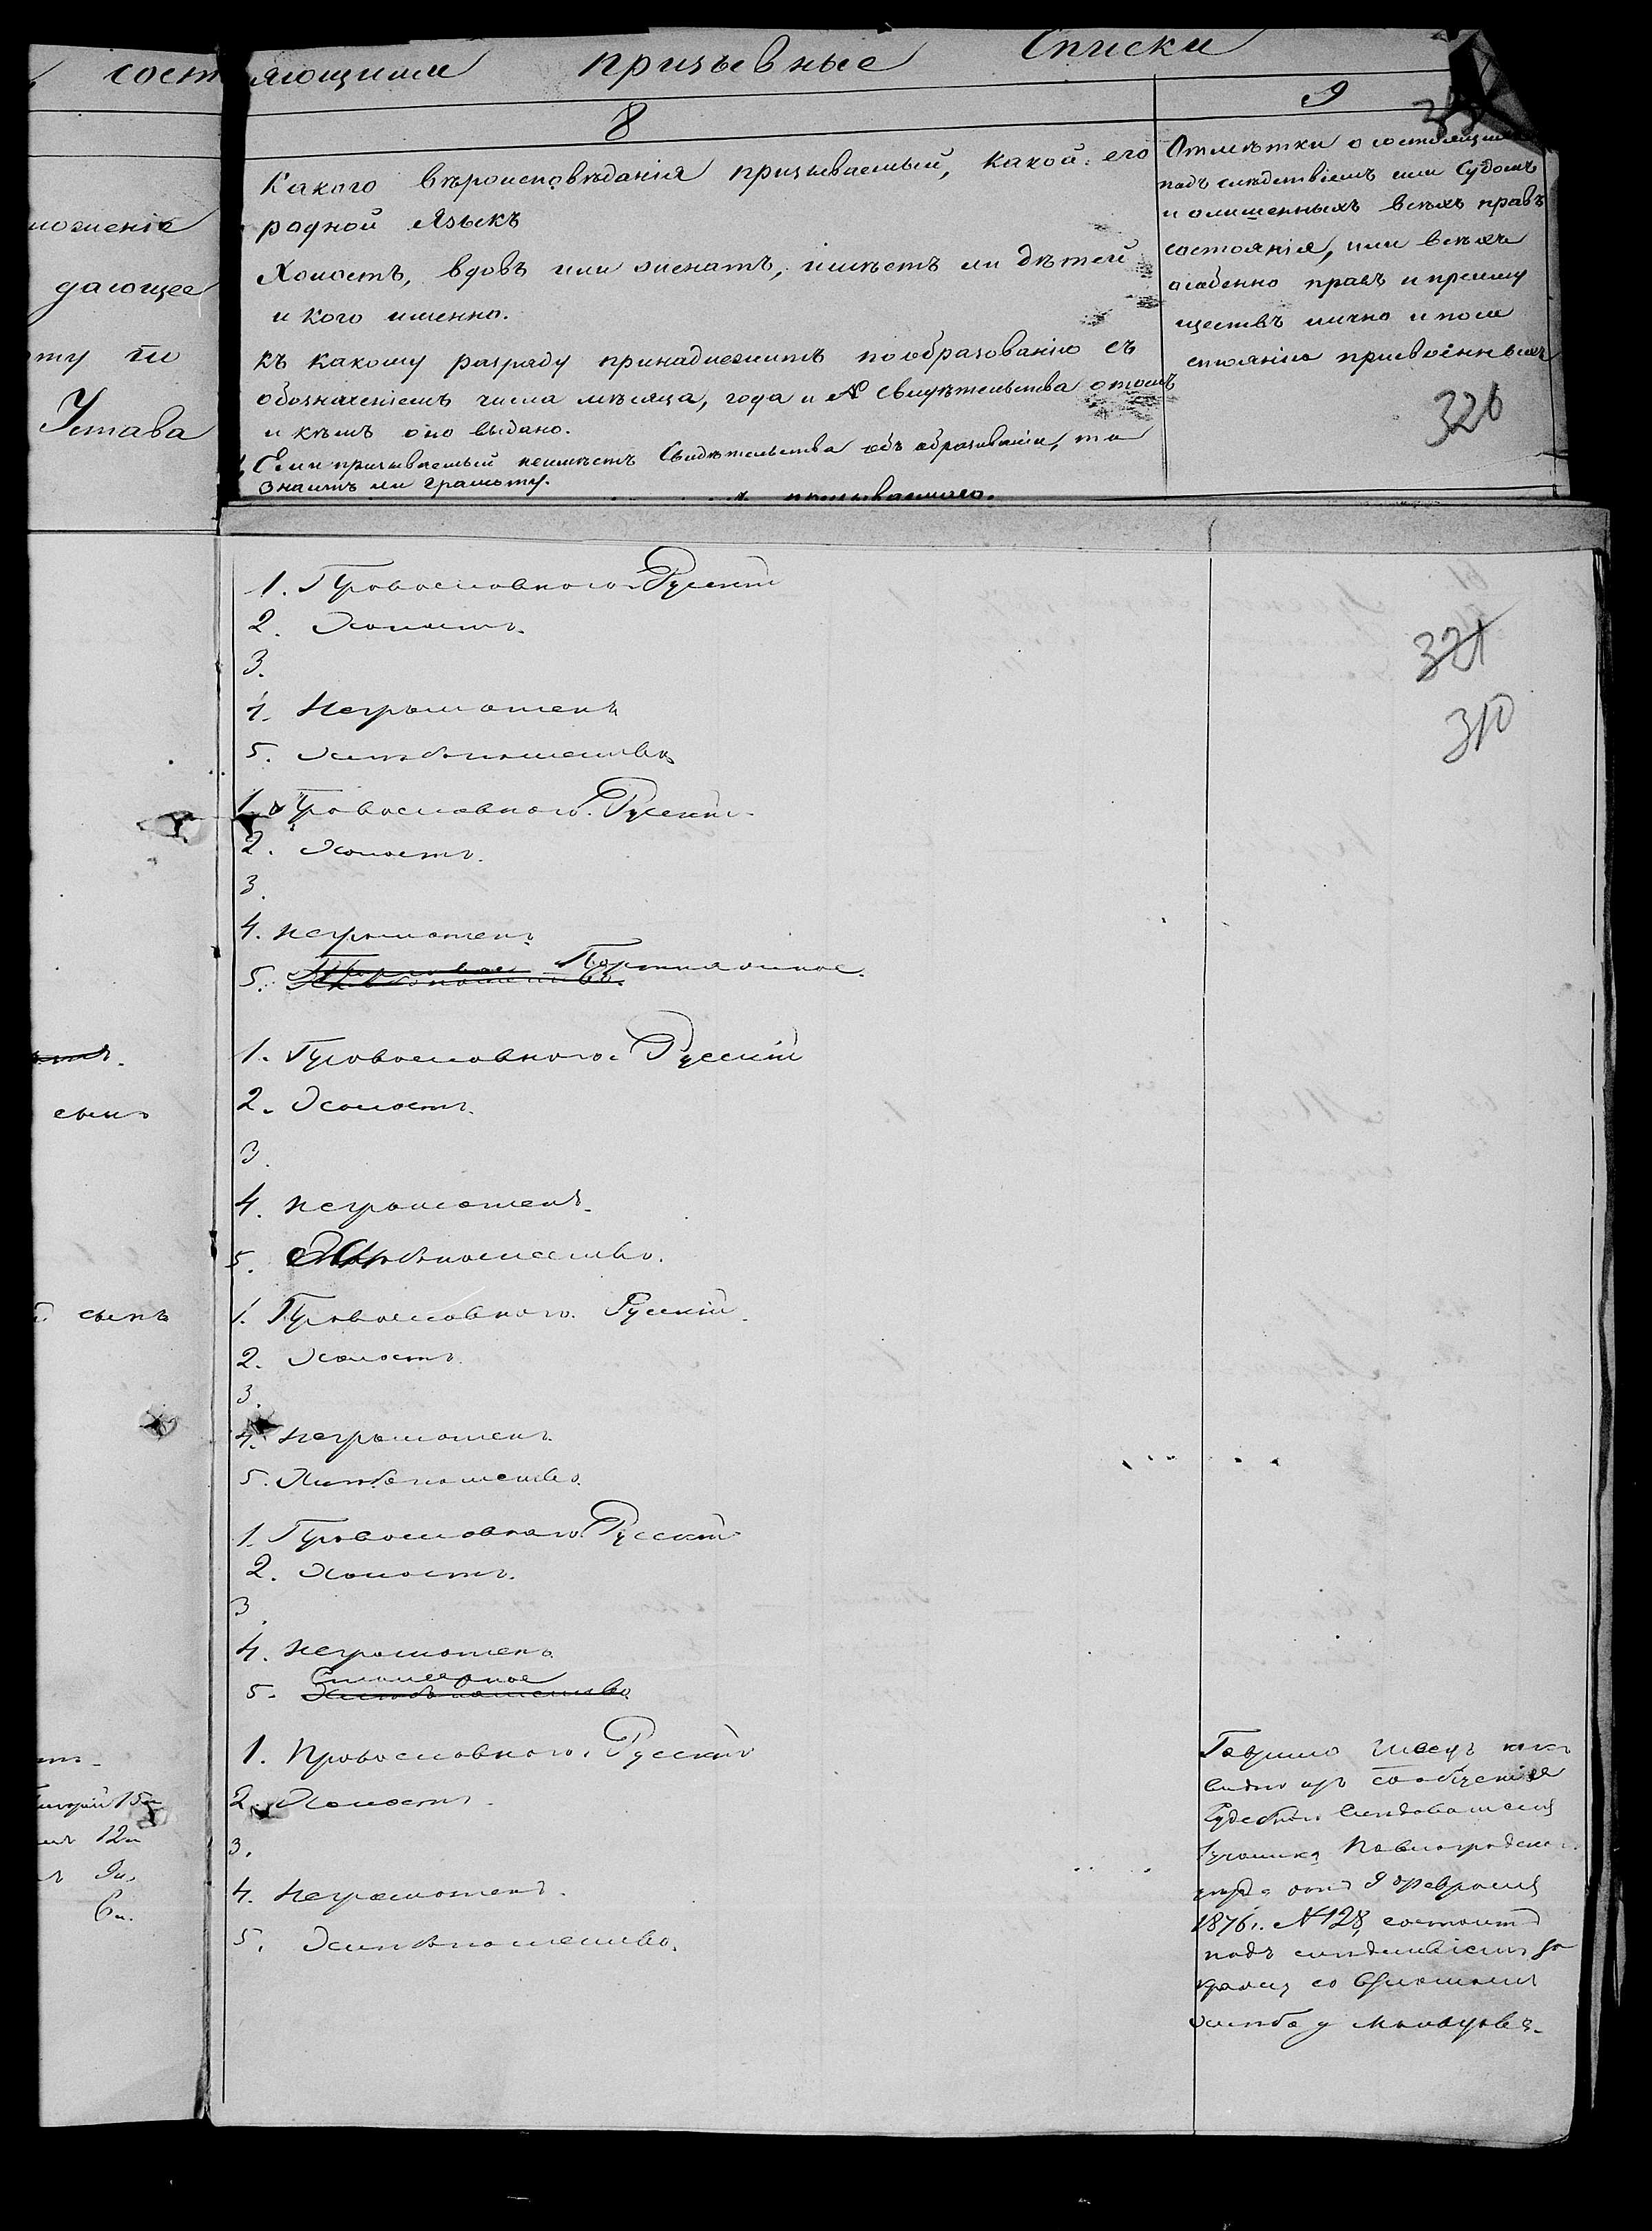 состоящими призывные Списки
8
9
Какого вѣроисповѣданія призываемый, какой его
родной Языкъ
Холостъ, вдовъ или женатъ, имѣетъ ли дѣтей
и кого именно.
Къ какому разряду принадлежитъ по образованію съ
обозначеніемъ числа мѣсяца, года и № Свидѣтельства о томъ
и кѣмъ оно выдано.
Если призываемый неимѣетъ Свидѣтельства объ образованіи, то
Знаетъ ли грамоту.
Отмѣтки о состоящихъ
подъ слѣдствіемъ или Судомъ
и о лишенныхъ всѣхъ правъ
состоянія, или всѣхъ
особенно правъ и преиму
ществъ лично и по со
стоянію присвоенныхъ
326
дающее
ту по
Устава
321
310
1. Православного Русскій
2. Холостъ.
3.
4. Неграмотенъ
5. Хлѣбопашество
1. Православного. Русскій.
2. Холостъ.
3.
4. неграмотенъ
5. Портняжное.
1. Православного. Русскій
2. Холостъ.
3.
4. неграмотенъ.
5. Хлѣбопашество.
сынъ
1. Православного. Русскій.
2. Холостъ.
3.
4. неграмотенъ.
5. Хлѣбопашество.
сынъ
1. Православного. Русскій
2. Холостъ.
3.
4. неграмотенъ
Столярное
5. Хлѣбопашество
1. Православного. Русскій
2. Холостъ.
3.
4. Неграмотенъ.
5. Хлѣбопашество.
15л
12л
9л.
6л.
Гаврило Швецъ какъ
видно изъ сообщенія
Судебнаго Слѣдователя
Участка Павлоградскаго
уѣзда отъ 9 Февраля
1876г. №128, состоитъ
подъ слѣдствіемъ за
кражу со взломомъ
хлѣба у